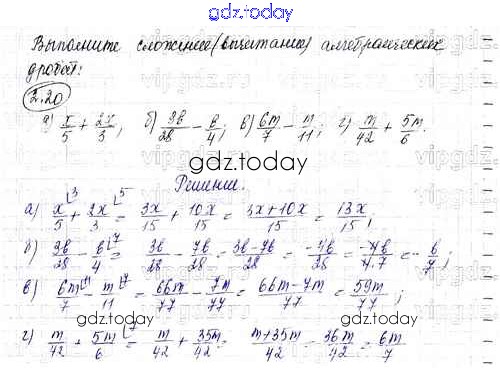 gdz.today
Выполните сложение (вычитание) алгебраических
дробей:
2.20
а) x/5 + 2x/3; б) 3b/28 - b/4; в) 6m/7 - m/11; г) m/42 + 5m/6.
gdz.today
Решение.
а) x/5 + 2x/3 = 3x/15 + 10x/15 = 3x+10x/15 = 13x/15;
б) 3b/28 - b/4 = 3b/28 - 7b/28 = 3b-7b/28 = -4b/28 = -4b/4·7 = - b/7;
в) 6m/7 - m/11 = 66m/77 - 7m/77 = 66m-7m/77 = 59m/77;
gdz.today
г) m/42 + 5m/6 = m/42 + 35m/42 = m+35m/42 = 36m/42 = 6m/7
gdz.today